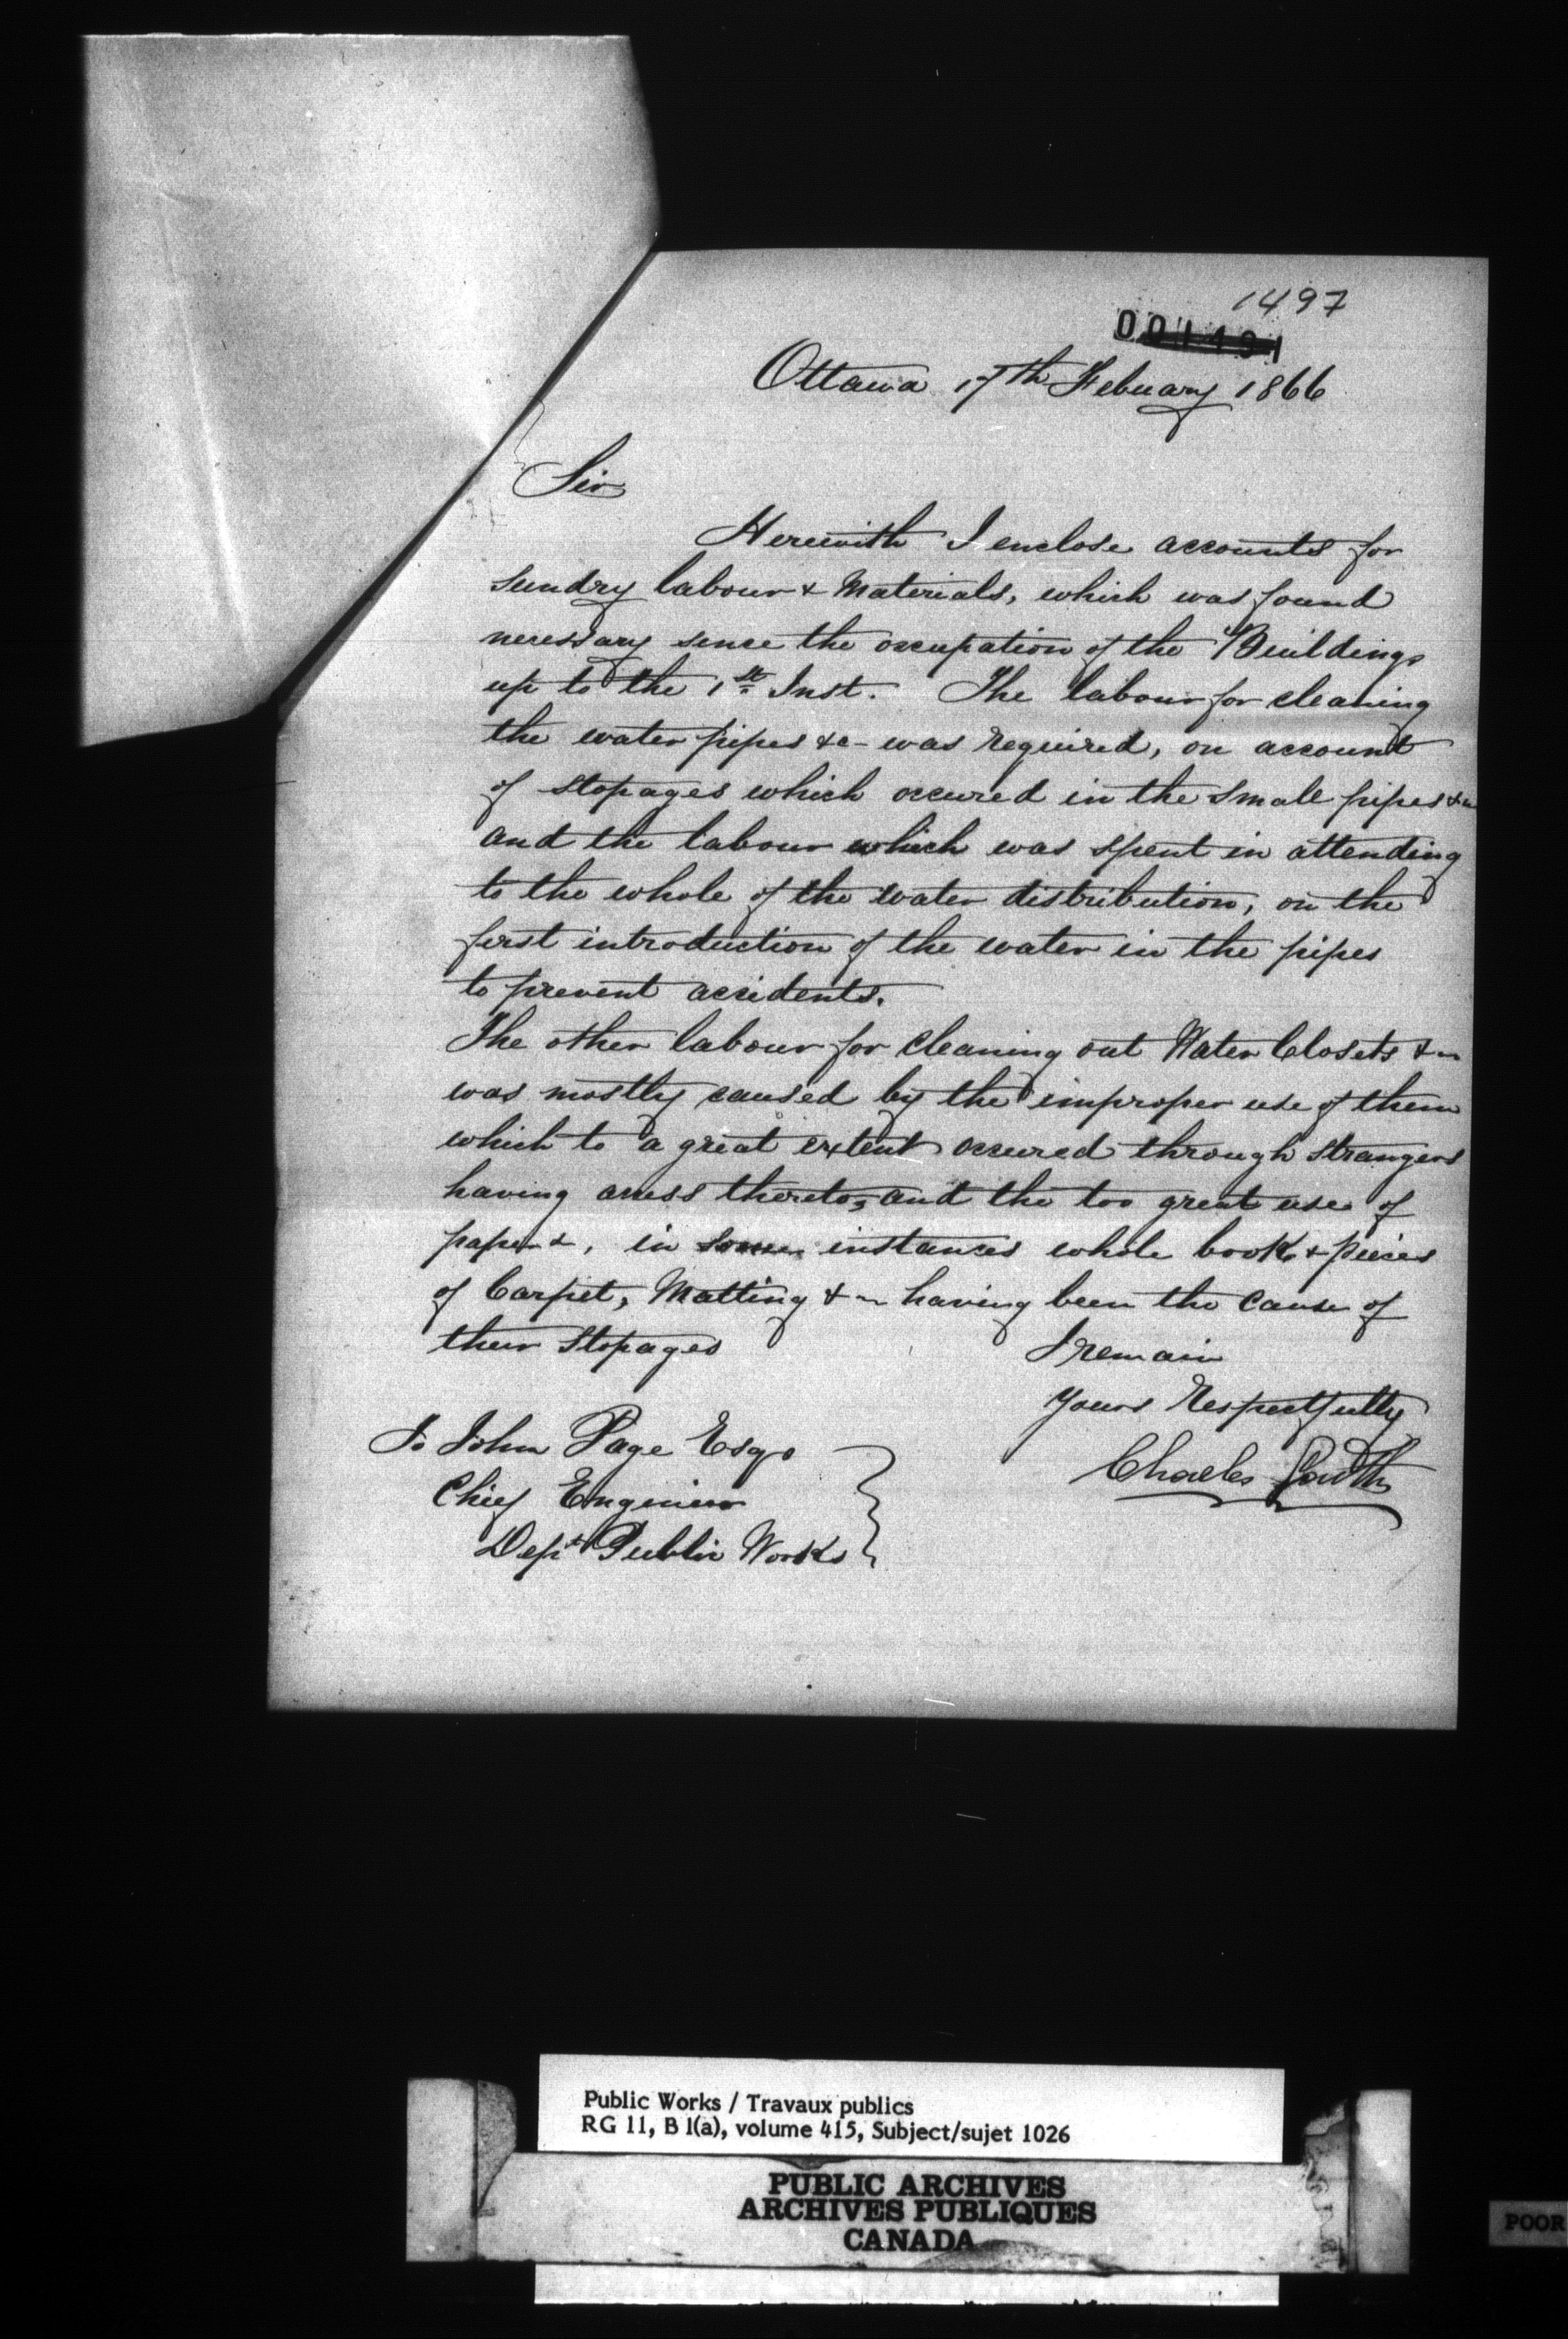 1497
001491
Ottawa 17th Febuary 1866
Sir
Herewith I enclose accounts for
sundry labour & Materials, which was found
necessary sence the occupation of the Buildings
up to the 1st Inst. The labour for cleaning
the water pipes &c - was required, on account
of stopages which occured in the small pipes &c
and the labour which was spent in attending
to the whole of the water distribution, on the
first introduction of the water in the pipes
to prevent accidents.
The other labour for cleaning out Water Closets &c
was mostly caused by the improper use of them
which to a great extent occured through strangers
having access thereto, and the too great use of
paper &, in some instances whole book & pieces
of Carpet, Matting &c having been the cause of
their stopages
I remain
Yours Respectfully
Charles
To John Page Esqr
Chief Engenier
Dept Public Works
Public Works / Travaux publics
RG 11, B 1(a), volume 415, Subject/sujet 1026
PUBLIC ARCHIVES
ARCHIVES PUBLIQUES
CANADA
POOR